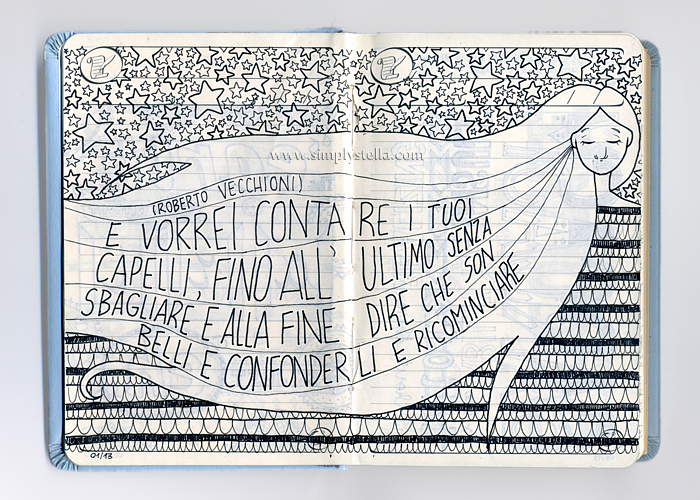 www.simplystella.com
(ROBERTO VECCHIONI)
E VORREI CONTARE I TUOI
CAPELLI, FINO ALL' ULTIMO SENZA
SBAGLIARE E ALLA FINE DIRE CHE SON
BELLI E CONFONDERLI E RICOMINCIARE
01/13